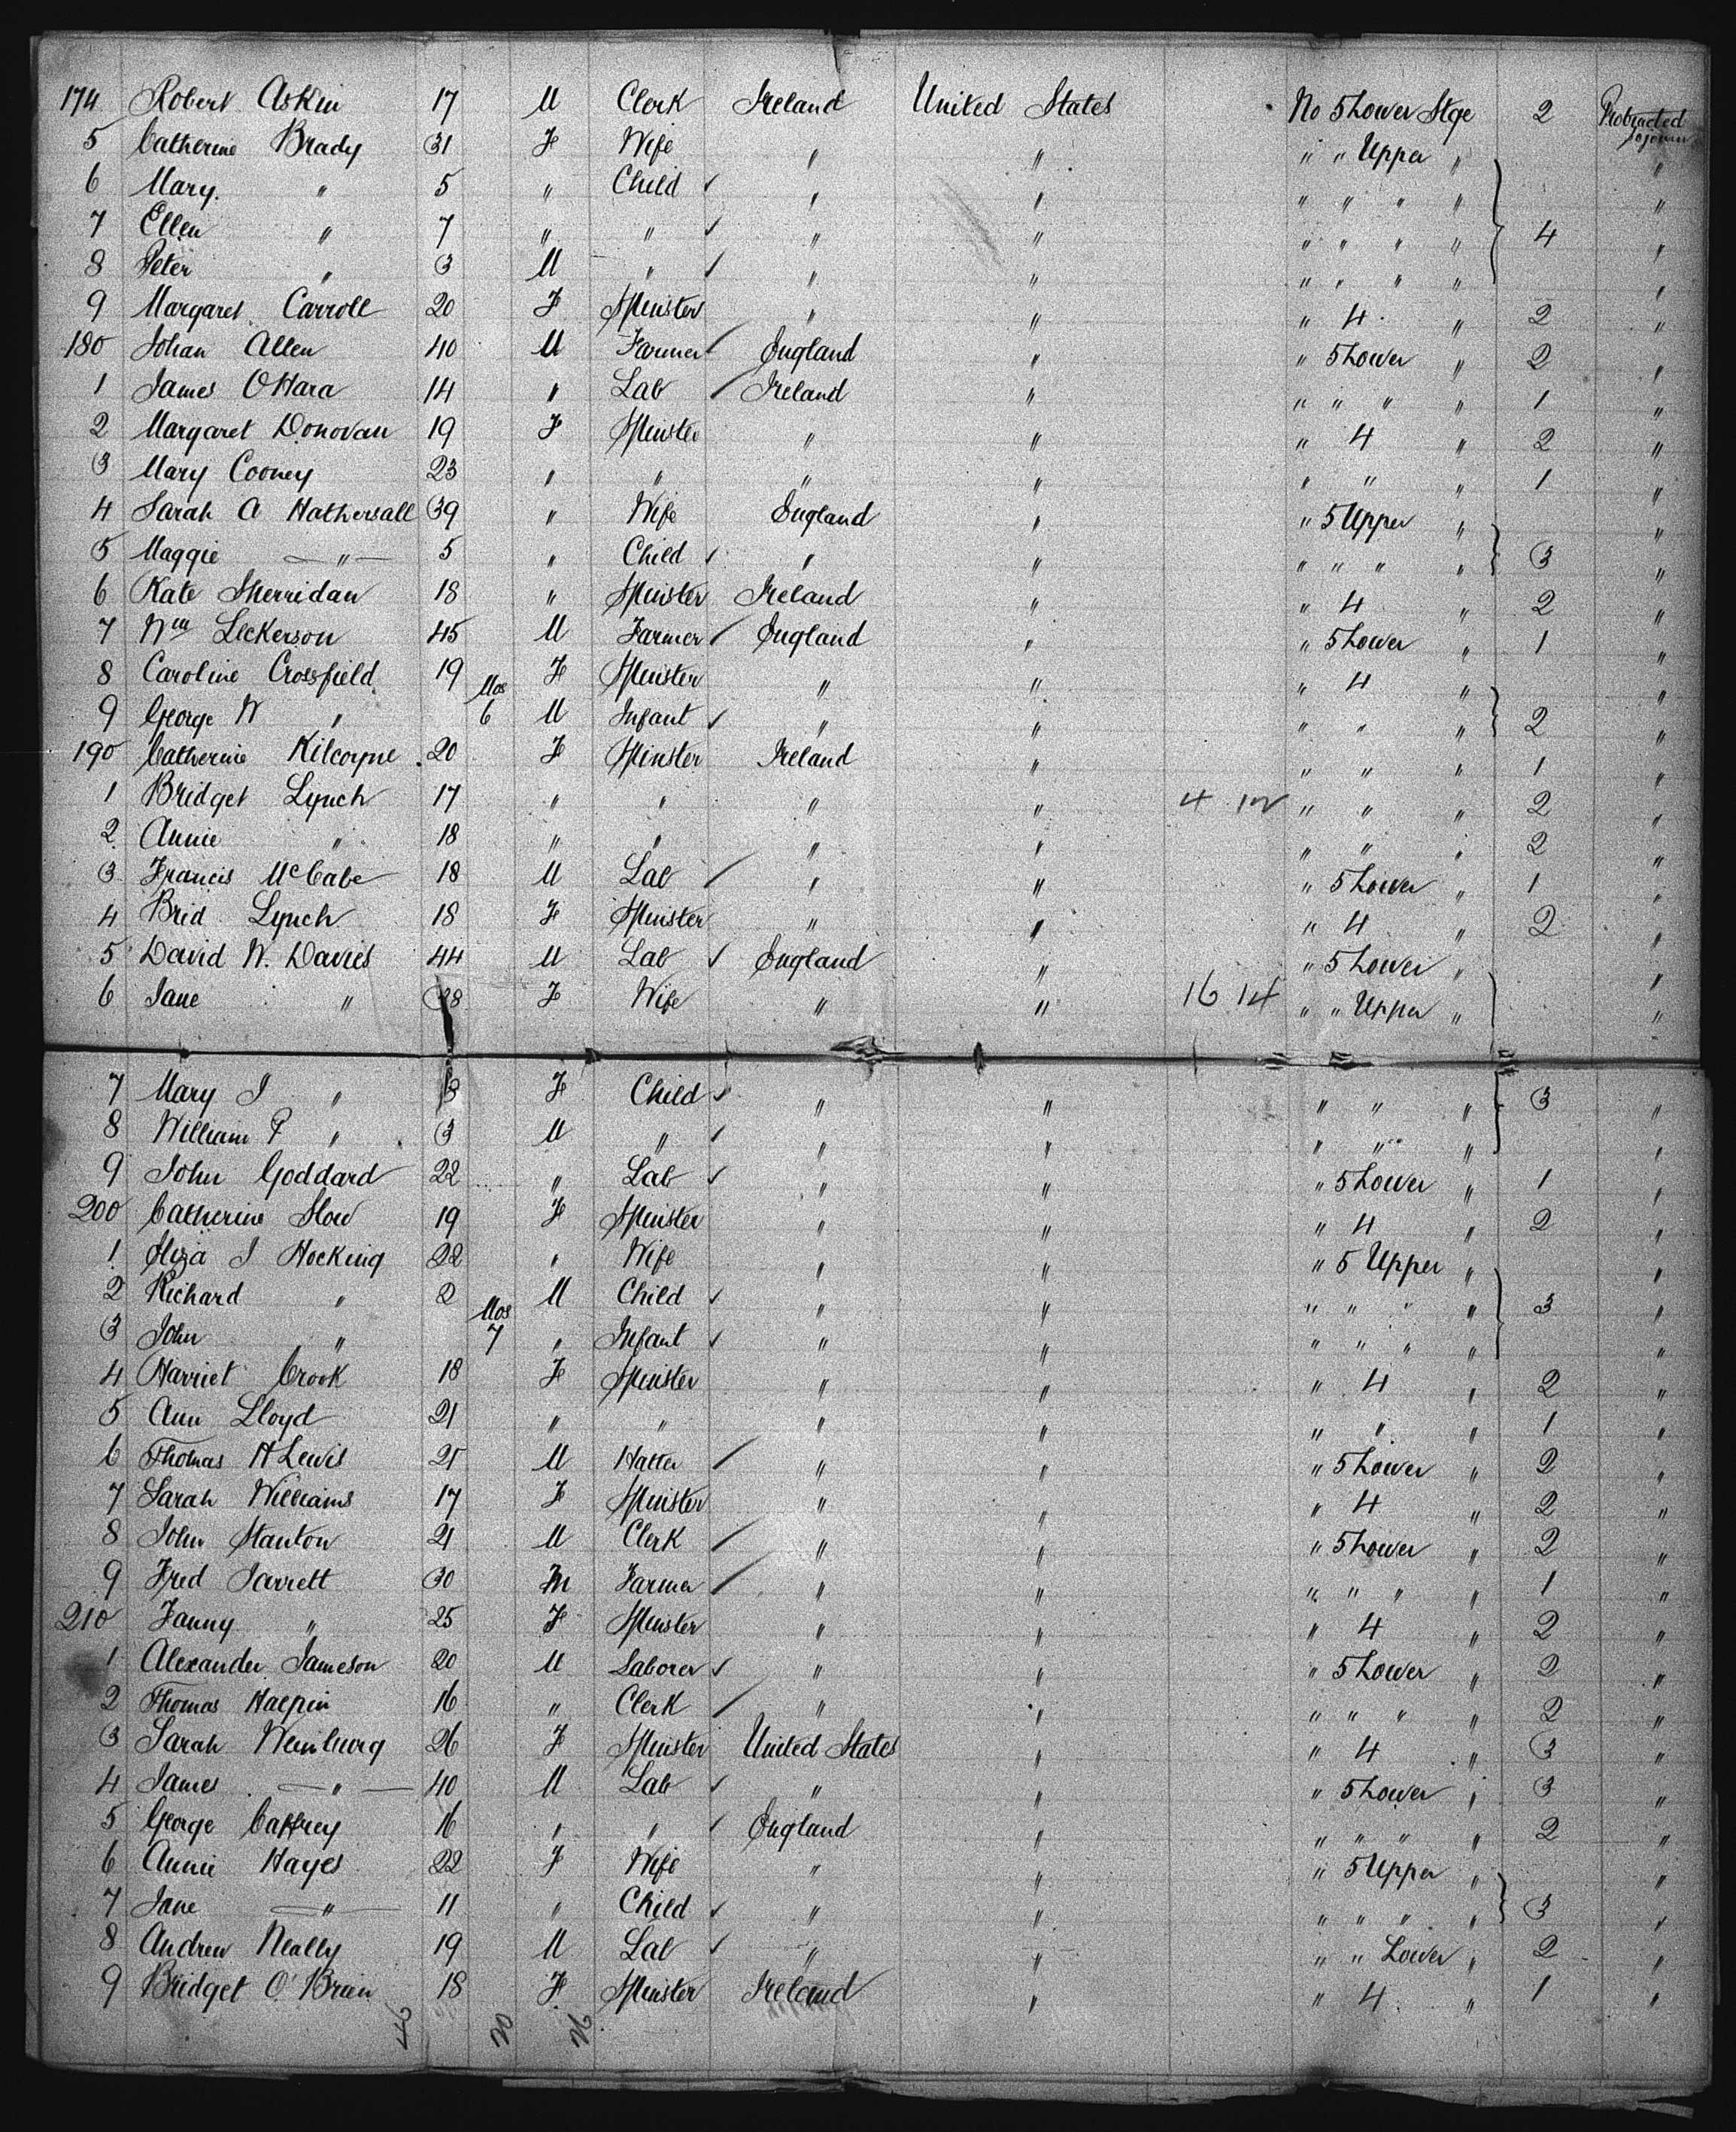 174 Robert Askin 17 M Clerk Ireland United States No 5 Lower Stge 2 Protracted sojourn
5 Catherine Brady 31 F Wife " " " " Upper " "
6 Mary " 5 " Child ✓ " " " " " " "
7 Ellen " 7 " " ✓ " " " " " " 4 "
8 Peter " 3 M " ✓ " " " " " " "
9 Margaret Carroll 20 F Spinster " " " 4 " 2 "
180 Johan Allen 40 M Farmer ✓ England " " 5 Lower " 2 "
1 James OHara 14 " Lab ✓ Ireland " " " " " 1 "
2 Margaret Donovan 19 F Spinster " " " 4 " 2 "
3 Mary Cooney 23 " " " " " " " 1 "
4 Sarah A Hathersall 39 " Wife England " " 5 Upper " "
5 Maggie " 5 " Child ✓ " " " " " " 3 "
6 Kate Sherridan 18 " Spinster Ireland " " 4 " 2 "
7 Wm Leckerson 45 M Farmer ✓ England " " 5 Lower " 1 "
8 Caroline Crossfield 19 F Spinster " " " 4 " "
9 George W " Mos 6 M Infant ✓ " " " " " 2 "
190 Catherine Kilcoyne 20 F Spinster Ireland " " " " 1 "
1 Bridget Lynch 17 " " " " 4 12 " " " 2 "
2 Annie " 18 " " " " " " " 2 "
3 Francis McCabe 18 M Lab ✓ " " " 5 Lower " 1 "
4 Brid Lynch 18 F Spinster " " " 4 " 2 "
5 David W. Davies 44 M Lab ✓ England " " 5 Lower " "
6 Jane " 38 F Wife " " 16 14 " " Upper " "
7 Mary J " F Child ✓ " " " " " 3 "
8 William P " 3 M " ✓ " " " " " "
9 John Goddard 22 " Lab ✓ " " " 5 Lower " 1 "
200 Catherine Slow 19 F Spinster " " " 4 " 2 "
1 Eliza J Hocking 22 " Wife " " " 5 Upper " "
2 Richard " 2 M Child ✓ " " " " " " 3 "
3 John " Mos 7 " Infant ✓ " " " " " " "
4 Harriet Crook 18 F Spinster " " " 4 " 2 "
5 Ann Lloyd 21 " " " " " " " 1 "
6 Thomas H Lewis 21 M Hatter ✓ " " " 5 Lower " 2 "
7 Sarah Williams 17 F Spinster " " " 4 " 2 "
8 John Stanton 21 M Clerk ✓ " " " 5 Lower " 2 "
9 Fred Jarrett 30 M Farmer ✓ " " " " " " 1 "
210 Fanny " 25 F Spinster " " " 4 " 2 "
1 Alexander Jameson 20 M Laborer ✓ " " " 5 Lower " 2 "
2 Thomas Halpin 16 " Clerk ✓ " " " " " " 2 "
3 Sarah Weinburg 26 F Spinster United States " " 4 " 3 "
4 James " 40 M Lab ✓ " " " 5 Lower " 3 "
5 George Caffrey 16 " " ✓ England " " " " " 2 "
6 Annie Hayes 22 F Wife " " " 5 Upper " "
7 Jane " 11 " Child ✓ " " " " " " 3 "
8 Andrew Neally 19 M Lab ✓ " " " " Lower " 2 "
9 Bridget O'Brien 18 F Spinster Ireland " " 4 " 1 "
46 20 26